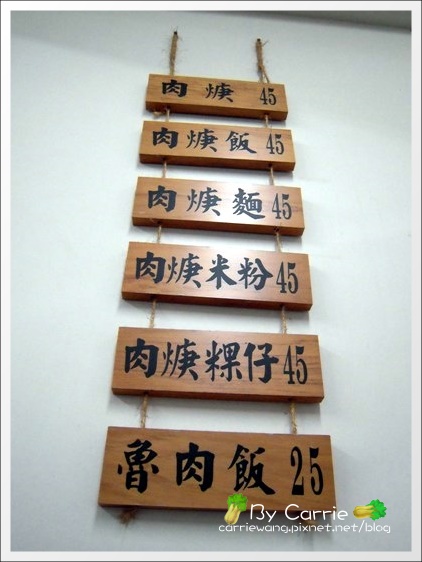 肉焿 45
肉焿飯 45
肉焿麵 45
肉焿米粉 45
肉焿粿仔 45
魯肉飯 25
By Carrie
carriewang.pixnet.net/blog